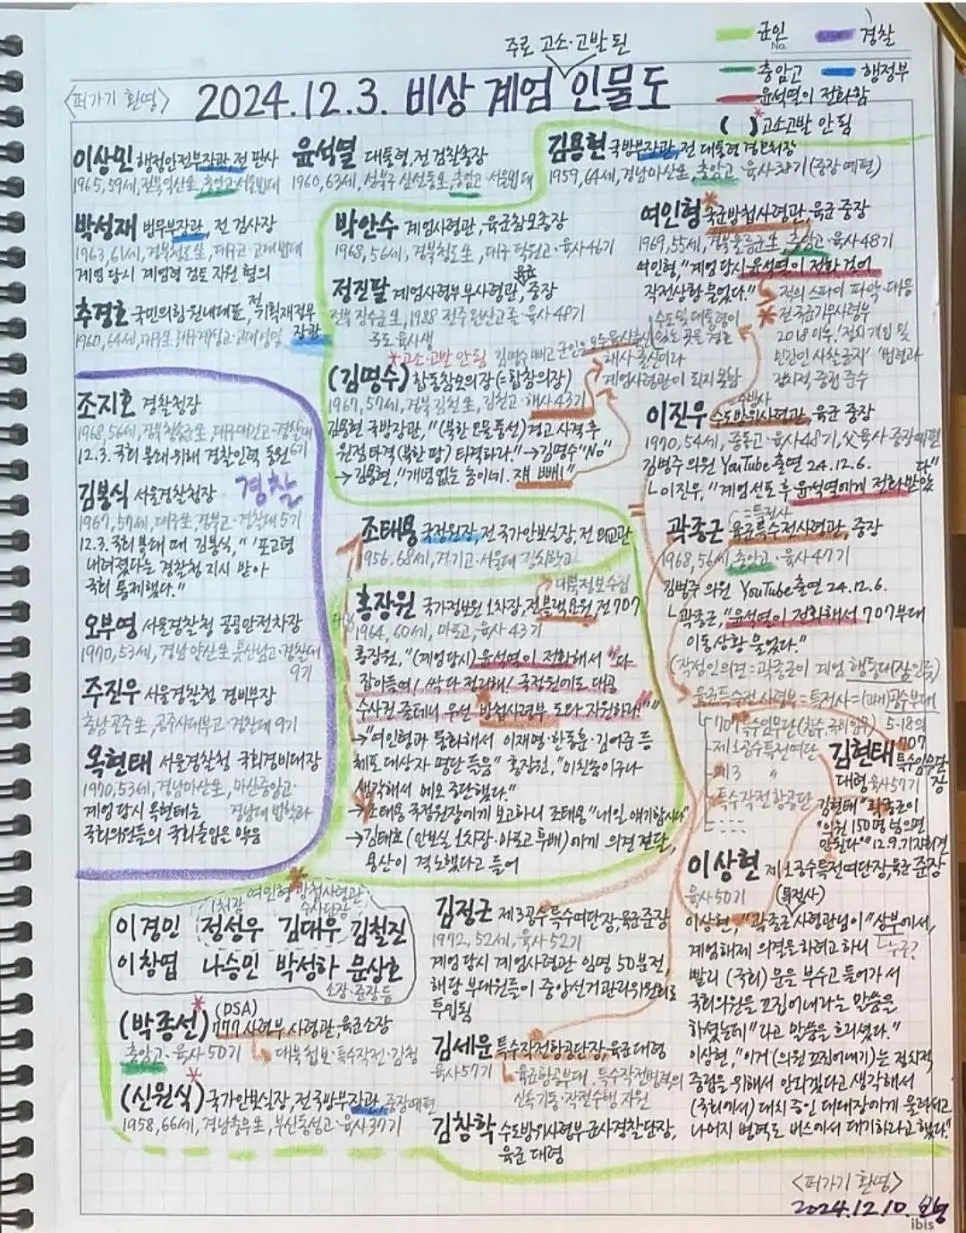 주로 고소·고발 된
군인
경찰
충암고
행정부
윤석열이 전화함
( )* 고소고발 안 됨
<퍼가기 환영>
2024.12.3. 비상 계엄 인물도
이상민 행정안전부장관, 전 판사
1965, 59세, 전북익산生, 충암고·서울법대
윤석열 대통령, 전 검찰총장
1960, 63세, 성북구 삼선동生, 충암고·서울법대
김용현 국방부장관, 전 대통령 경호처장
1959, 64세, 경남마산生, 충암고·육사38기 (중장 예편)
박성재 법무부장관, 전 검사장
1963, 61세, 경북청도生, 대구고·고대법대
계엄 당시 계엄령 검토 지원 혐의
추경호 국민의힘 원내대표, 전 기획재정부 장관
1960, 64세, 대구生, 대구계성고·고대경영
박안수 계엄사령관, 육군참모총장
1968, 56세, 경북청도生, 대구 덕원고·육사46기
정진팔 계엄사령부 부사령관, 중장
전북 장수군生, 1988 전주완산고졸·육사48기
*고소·고발 안 됨
(김명수) 합동참모의장 (=합참의장)
1967, 57세, 경북 김천生, 김천고·해사43기
김용현 국방장관, "(북한 오물풍선) 경고사격 후
원점타격 (북한 땅) 타격하라." → 김명수 "No"
→ 김용현, "개념없는 놈이네. 쟤 빼!"
해사 출신이라
계엄사령관이 되지 못함
여인형 국군방첩사령관, 육군 중장
1969, 55세, 경북울릉군生, 충암고·육사48기
여인형, "계엄 당시 윤석열이 전화 걸어
작전상황 물었다."
적의 스파이 파악·대응
전 국군기무사령부
2018 이후, '정치 개입 및
민간인 사찰금지' '법령과
정치적 중립 준수
이진우 수도방위사령관, 육군 중장
=수방사
1970, 54세, 중동고·육사48기, 父육사·중장예편
김병주 의원 YouTube 출연 24.12.6.
└이진우, "계엄선포 후 윤석열에게 전화받았다"
곽종근 육군특수전사령관, 중장
=특전사
1968, 56세, 충암고·육사47기
김병주 의원 YouTube 출연 24.12.6.
└곽종근, "윤석열이 전화해서 707부대
이동상황 물었다."
(작성인의견 = 곽종근이 계엄 행동대장인듯)
육군특수전 사령부 = 특전사 = (구)공수부대
조지호 경찰청장
1968, 56세, 경북청송군生, 대구대건고·경찰대 6기
12.3. 국회 봉쇄 위해 경찰인력 동원
경찰
김봉식 서울경찰청장
1967, 57세, 대구生, 경북고·경찰대 5기
12.3. 국회 봉쇄 때 김봉식, "'포고령
내려졌다'는 경찰청 지시 받아
국회 통제했다."
오부명 서울경찰청 공공안전차장
1970, 53세, 경남양산生, 울산남고·경찰대
9기
주진우 서울경찰청 경비부장
충남공주生, 공주사대부고·경찰대 9기
목현태 서울경찰청 국회경비대장
1970, 53세, 경남마산生, 마산중앙고·
경남대 법학과
계엄 당시 목현태는
국회의원들의 국회출입을 막음
조태용 국정원장, 전 국가안보실장, 전 외교관
1956, 68세, 경기고·서울대 정치학과
대북정보수집
홍장원 국가정보원 1차장, 전 블랙요원, 전 707
1964, 60세, 마포고, 육사 43기
홍장원, "(계엄당시) 윤석열이 전화해서 "다
잡아들여! 싹 다 정리해! 국정원에도 대공
수사권 줄테니 우선 방첩사령부 도와 지원하라!""
→ "여인형과 통화해서 이재명·한동훈·김어준 등
체포 대상자 명단 들음" 홍장원, "미친놈이구나
생각해서 메모 중단했다."
→ 조태용 국정원장에게 보고하니 조태용 "내일 얘기합시다"
→ 김태효 (안보실 1차장·아프고 투배)에게 의견 전달,
용산이 격노했다고 들어
707특수임무단
5·18의
제1공수특전여단
제3 〃
특수작전항공단
김현태 707 특수임무단장
대령 육사57기
김현태 "곽종근이
의원 150명 넘으면
안된다" 12.9. 기자회견
이상현 제1공수특전여단장, 육군 준장
육사50기
(특전사)
이상현, "곽종근사령관님이 "상부에서,
계엄해제 의결을 하려고 하니
└누구?
빨리 (국회) 문을 부수고 들어가서
국회의원을 끄집어내라는 말씀을
하셨는데"라고 말씀을 흐리셨다."
이상현, "이거 (의원 끄집어내기)는 정치적
중립을 위해서 안되겠다고 생각해서
(국회에서) 대치 중인 대대장에게 물러서고
나머지 병력도 버스에서 대기하라고 했다."
여인형 방첩사령관
1처장
수사단장
이경민 정성우 김대우 김철진
이창엽 나승민 박성하 문상호
소장·준장 등
(박종선)* (DSA)
777 사령부 사령관, 육군소장
충암고·육사50기
대북첩보·특수작전·감청
(신원식)* 국가안보실장, 전 국방부장관, 중장예편
1958, 66세, 경남통영生, 부산동성고·육사37기
김정근 제3공수특수여단장, 육군준장
1972, 52세, 육사52기
계엄 당시 계엄사령관 임명 50분 전,
해당 부대원들이 중앙선거관리위원회로
투입됨
김세운 특수작전항공단장, 육군대령
육사57기
육군항공부대, 특수작전병력의
신속기동·작전수행 지원
김창학 수도방위사령부 군사경찰단장,
육군 대령
<퍼가기 환영>
2024.12.10.
ibis